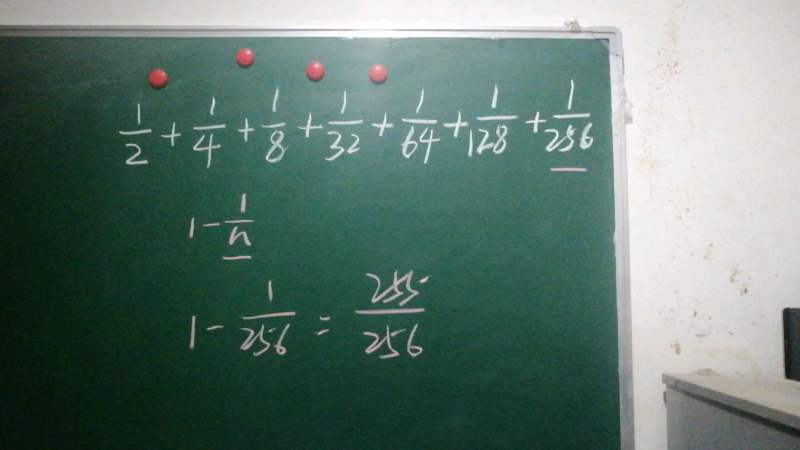 1/2 + 1/4 + 1/8 + 1/32 + 1/64 + 1/128 + 1/256
1 - 1/n
1 - 1/256 = 255/256